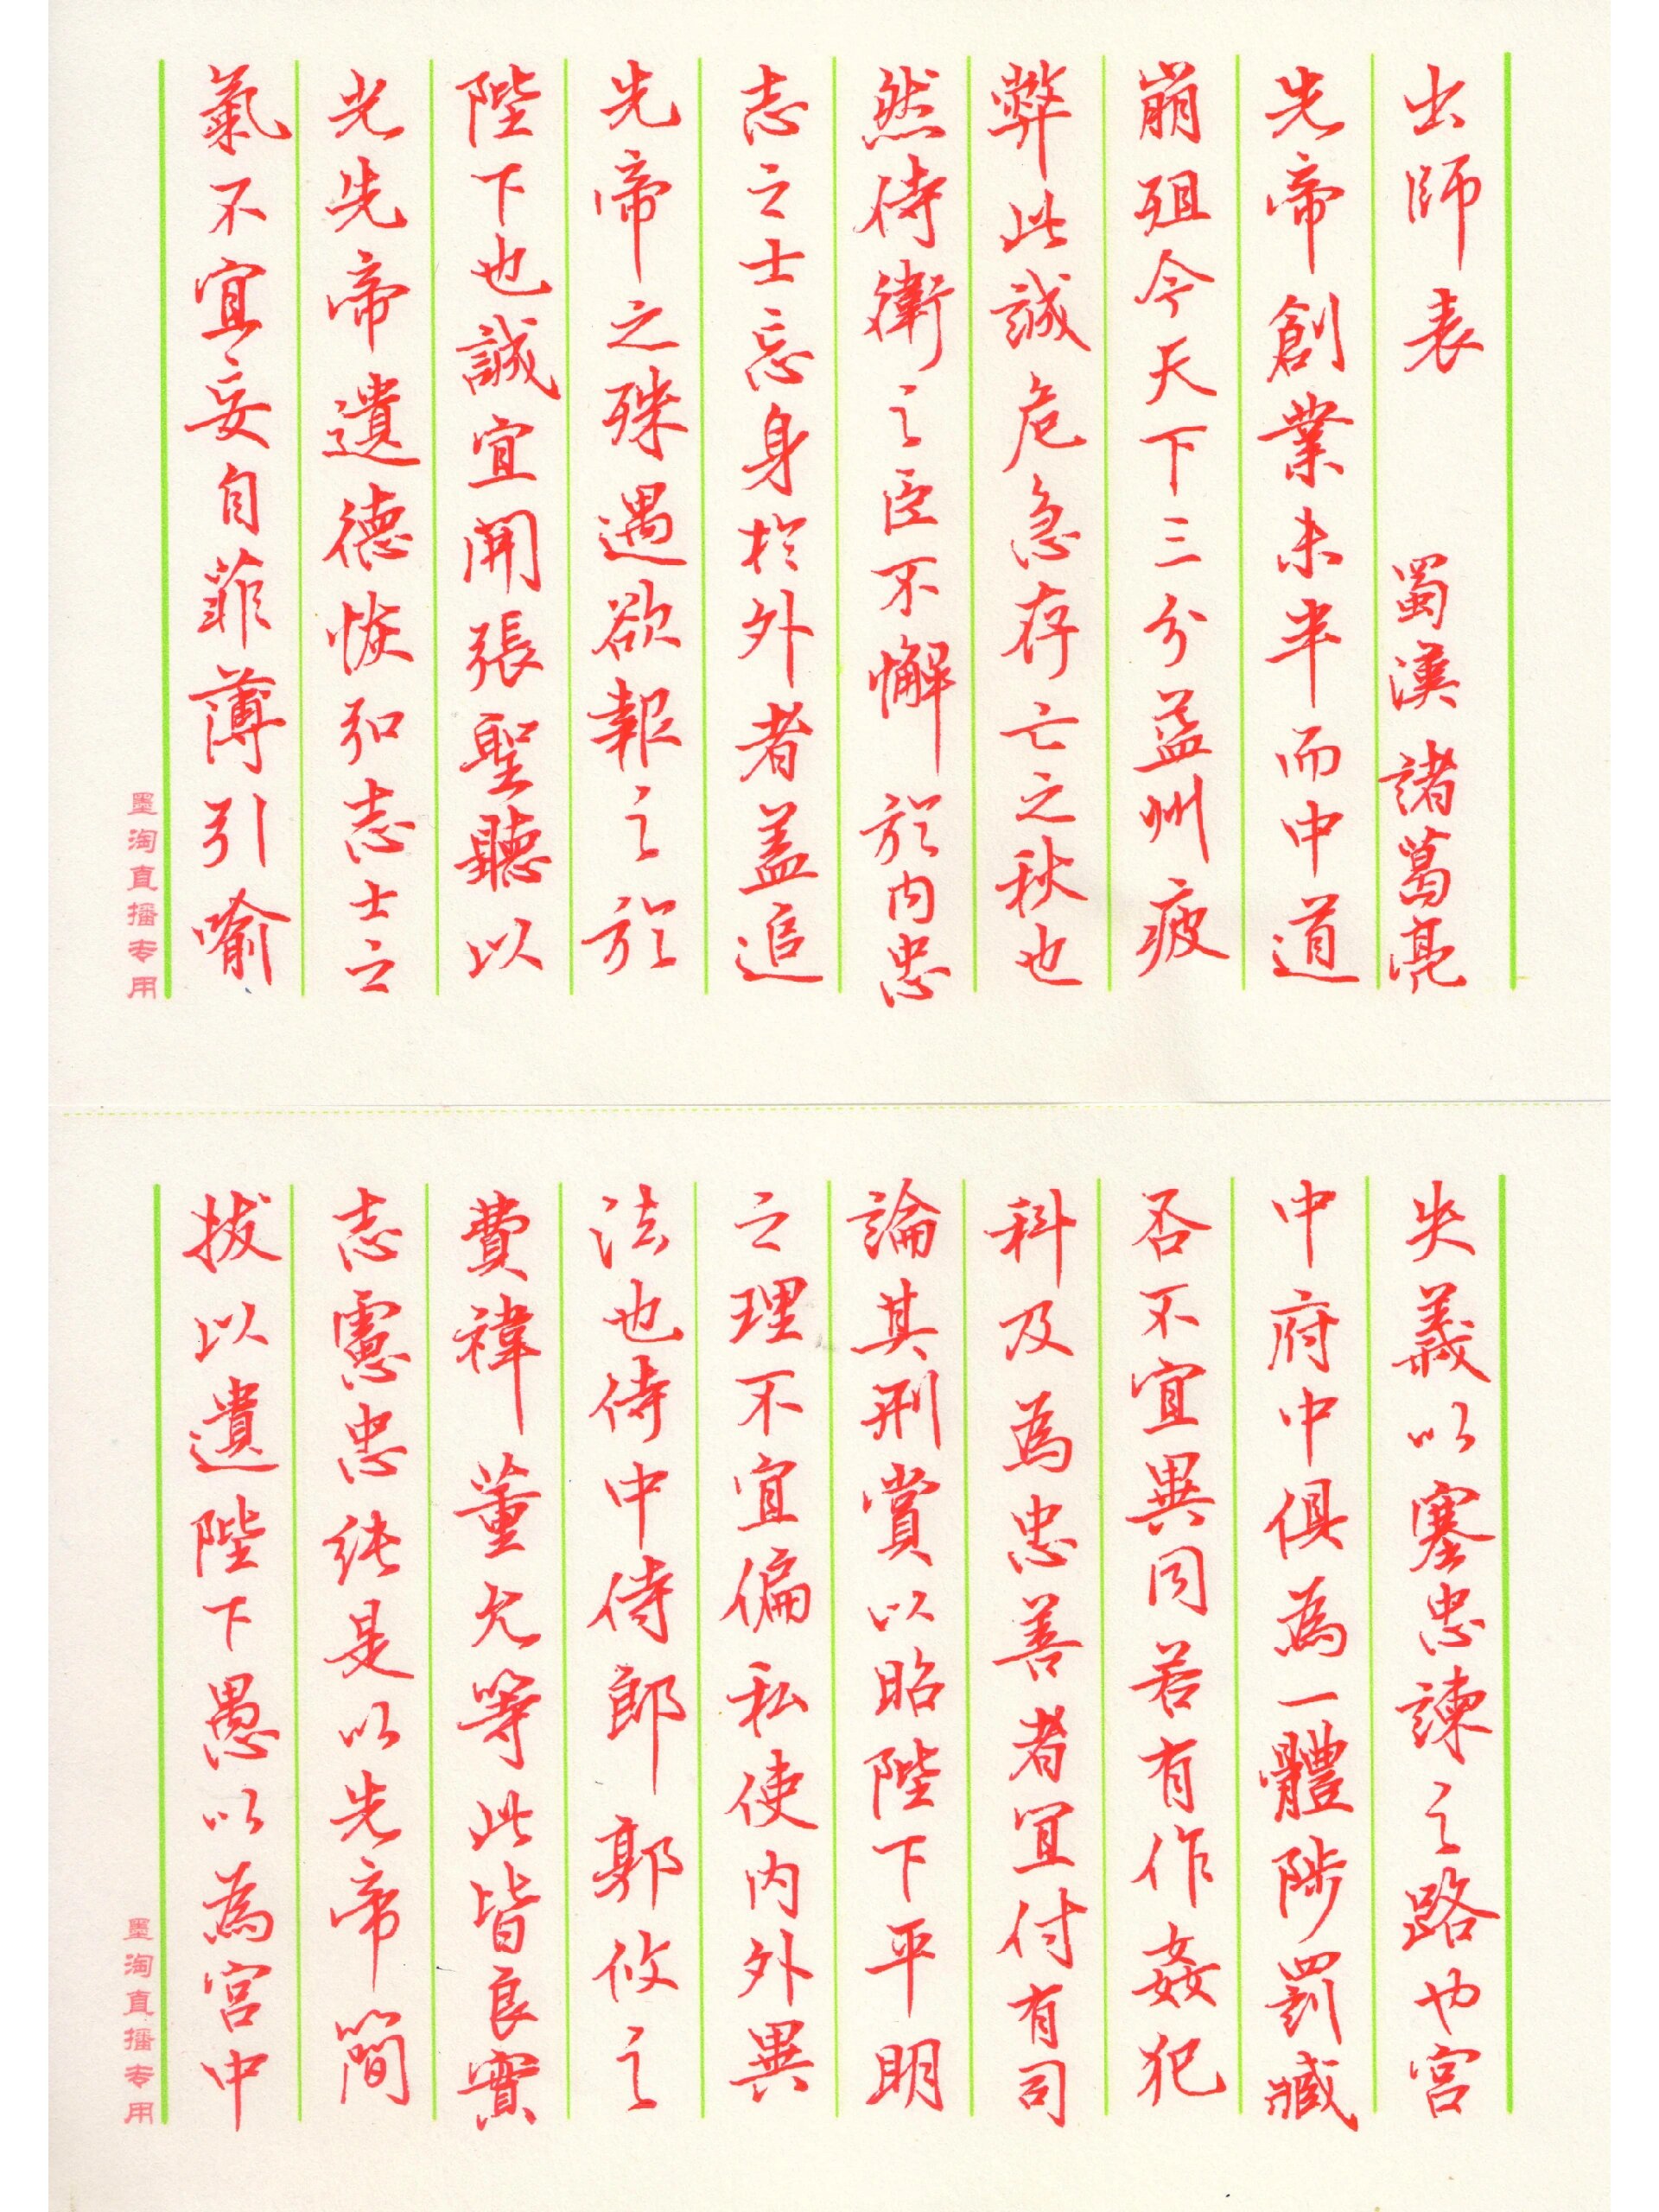 出師表 蜀漢 諸葛亮
先帝創業未半而中道
崩殂今天下三分益州疲
弊此誠危急存亡之秋也
然侍衛之臣不懈於内忠
志之士忘身於外者蓋追
先帝之殊遇欲報之於
陛下也誠宜開張聖聽以
光先帝遺德恢弘志士之
氣不宜妄自菲薄引喻
墨淘直播专用
失義以塞忠諫之路也宮
中府中俱為一體陟罰臧
否不宜異同若有作姦犯
科及為忠善者宜付有司
論其刑賞以昭陛下平明
之理不宜偏私使内外異
法也侍中侍郎郭攸之
費禕董允等此皆良實
志慮忠純是以先帝簡
拔以遺陛下愚以為宮中
墨淘直播专用